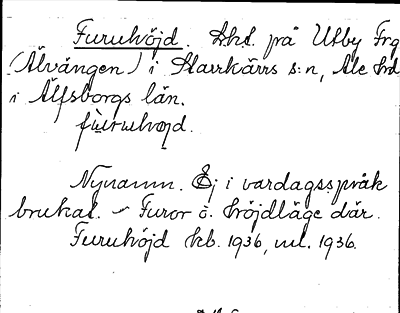 Furuhöjd. Lht. på Utby Frg
(Älvängen) i Starrkärrs s:n, Ale hd
i Älfsborgs län.
fùruhœjd.
Nynamn. Ej i vardagsspråk
brukat. – Furor o. höjdläge där.
Furuhöjd kb. 1936, ml. 1936.